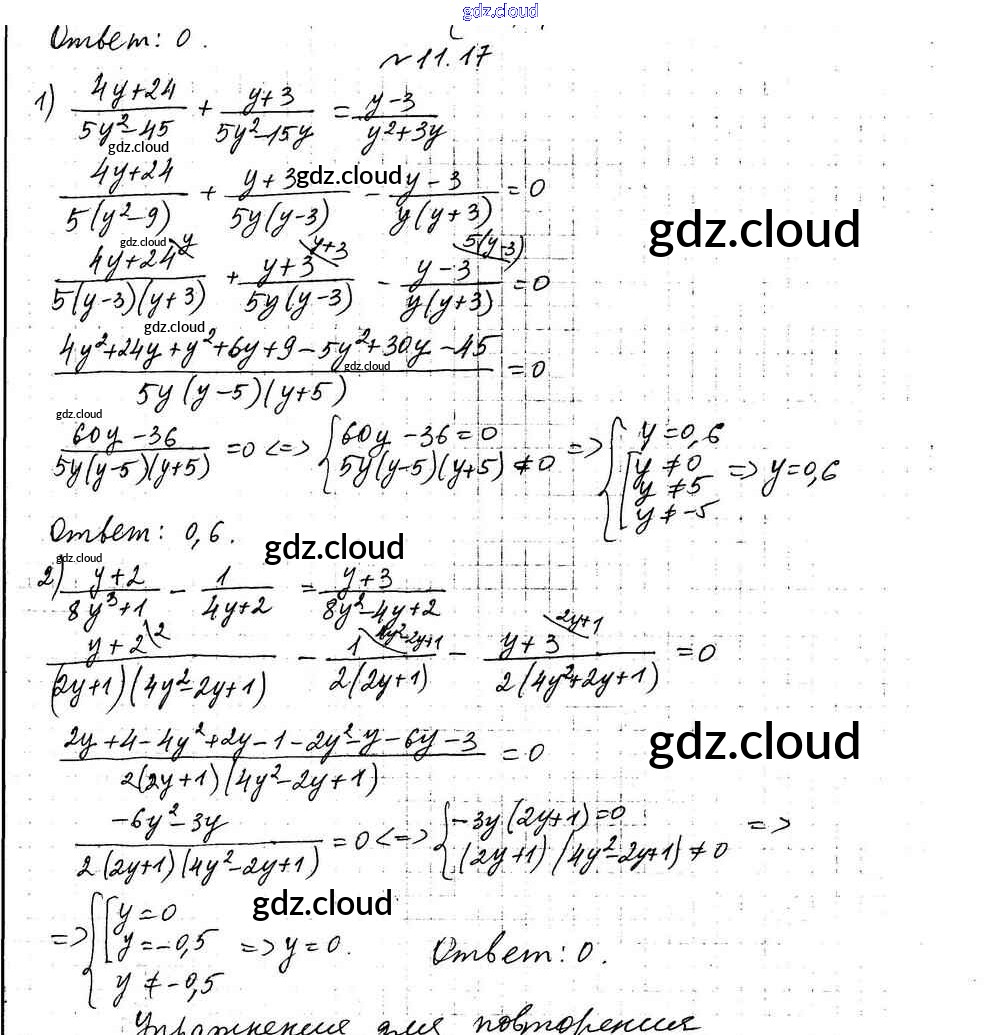 gdz.cloud
Ответ: 0.
№11.17
1) (4y+24)/(5y²-45) + (y+3)/(5y²-15y) = (y-3)/(y²+3y)
gdz.cloud
(4y+24)/(5(y²-9)) + (y+3)/(5y(y-3)) - (y-3)/(y(y+3)) = 0
gdz.cloud
gdz.cloud
gdz.cloud
(4y+24\y)/(5(y-3)(y+3)) + (y+3\y+3)/(5y(y-3)) - (y-3\5(y-3))/(y(y+3)) = 0
gdz.cloud
(4y²+24y+y²+6y+9-5y²+30y-45)/(5y(y-5)(y+5)) = 0
gdz.cloud
gdz.cloud
(60y-36)/(5y(y-5)(y+5)) = 0 <=> { 60y-36=0 ; 5y(y-5)(y+5) ≠ 0 => { y=0,6 ; [ y≠0 ; y≠5 ; y≠-5 => y=0,6
Ответ: 0,6.
gdz.cloud
gdz.cloud
2) (y+2)/(8y³+1) - 1/(4y+2) = (y+3)/(8y²-4y+2)
(y+2\2)/((2y+1)(4y²-2y+1)) - (1\4y²-2y+1)/(2(2y+1)) - (y+3\2y+1)/(2(4y²+2y+1)) = 0
(2y+4-4y²+2y-1-2y²-y-6y-3)/(2(2y+1)(4y²-2y+1)) = 0
gdz.cloud
(-6y²-3y)/(2(2y+1)(4y²-2y+1)) = 0 <=> { -3y(2y+1)=0 ; (2y+1)(4y²-2y+1) ≠ 0 =>
gdz.cloud
=> { [ y=0 ; y=-0,5 ; y≠-0,5 => y=0. Ответ: 0.
Упражнения для повторения